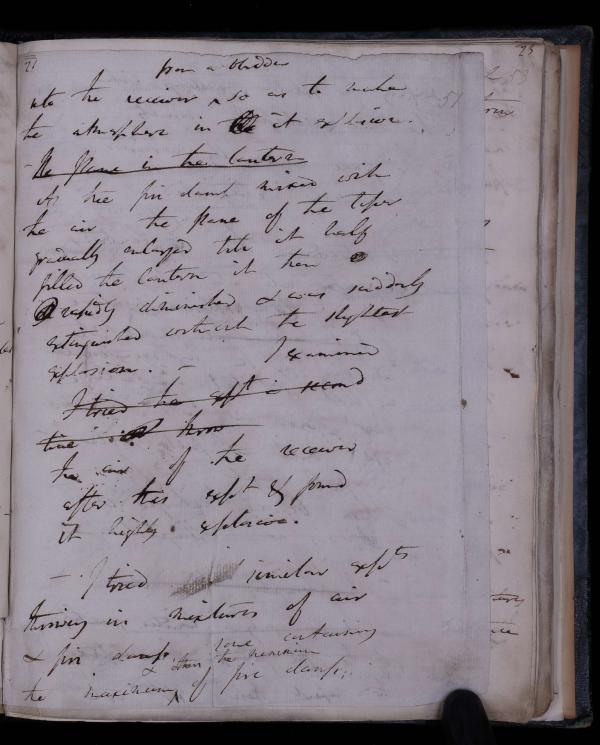 21
25
51
from a bladder
into the receiver so as to make
the atmosphere in it explosive.
- The flame in the lantern
As the fire damp mixed with
the air the flame of the taper
gradually enlarged till it half
filled the lantern it then
rapidly diminished & was suddenly
extinguished without the slightest
explosion. - I examined
I tried the expt a second
time
the air of the receiver
after this expt & found
it highly explosive.
- I tried similar expts
throwing in mixtures of air
& fire damp some containing
& others the minimum
the maximum of fire damp;